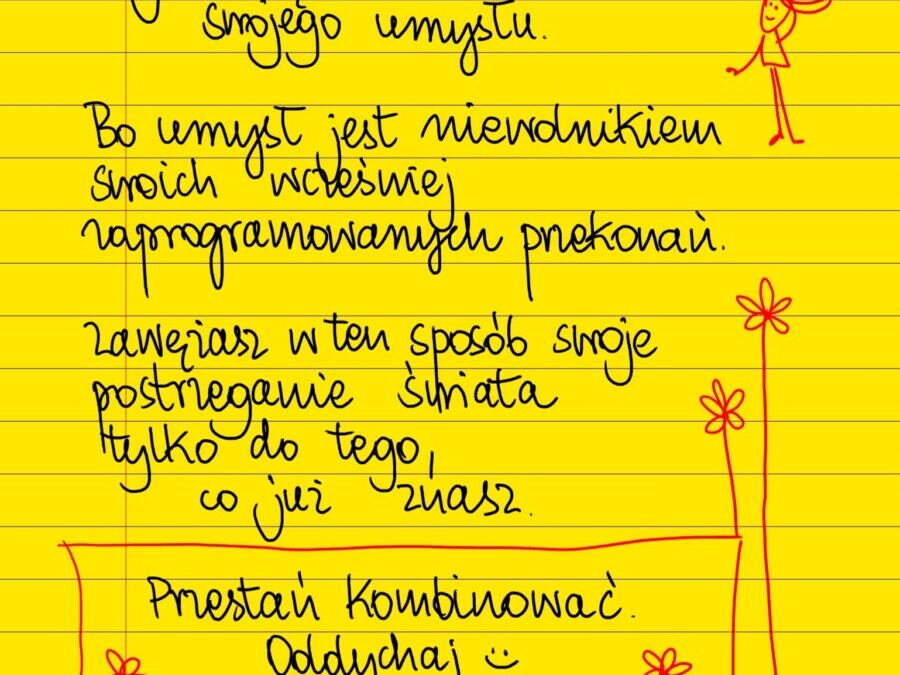 swojego umysłu.
Bo umysł jest niewolnikiem
swoich wcześniej
zaprogramowanych przekonań.
Zawężasz w ten sposób swoje
postrzeganie świata
tylko do tego,
co już znasz.
Przestań kombinować.
Oddychaj :)